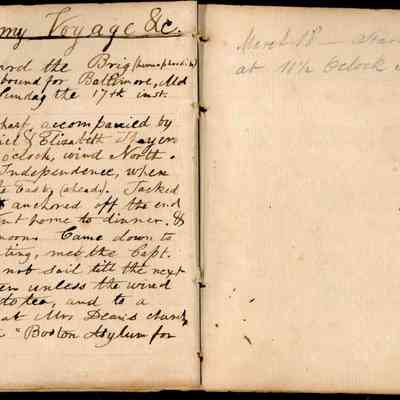 my Voyage &c.
the Brig (hermaphrodite)
bound for Baltimore, Md
Sunday the 17th inst.
accompanied by
& Elizabeth Thayer
o'clock, wind North.
Independence, where
(ahead). Tacked
anchored off the end
home to dinner. &
Came down to
met the Capt.
not sail till the next
unless the wind
to tea, and to a
at Mrs Dean's
"Boston Asylum for
March 18 —
at 11½ Oclock